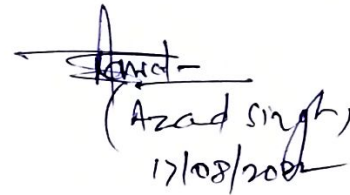 (Azad Singh)
17/08/2022